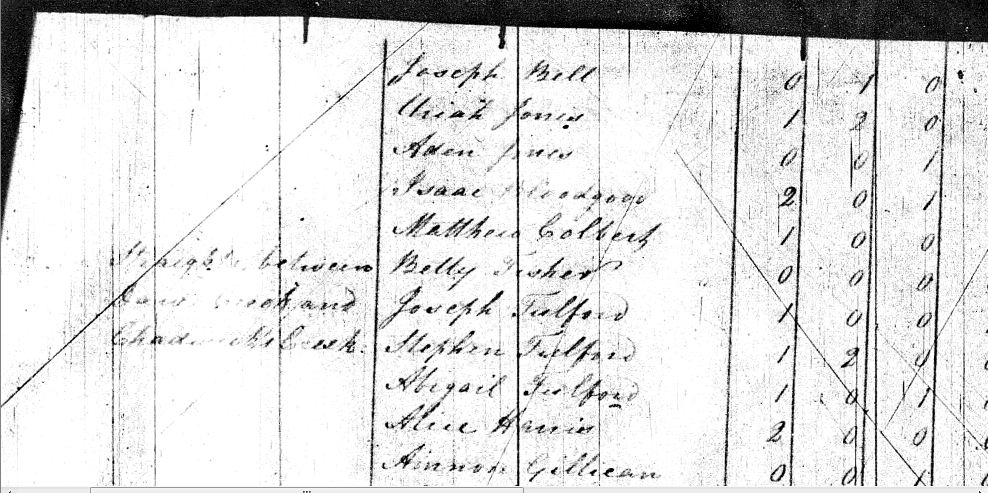 Joseph Bell 0 1 0
Uriah Jones 1 2 0
Aden Jones 0 0 1
Isaac Bloodgood 2 0 1
Matthew Colbert 1 0 0
Straights between Betty Fisher 0 0 0
and Joseph Fulford 1 0 0
Chadwicks Creek. Stephen Fulford 1 2 0
Abigail Fulford 1 0 1
Alice Harris 2 0 0
Ainnon Gillican 0 0 1